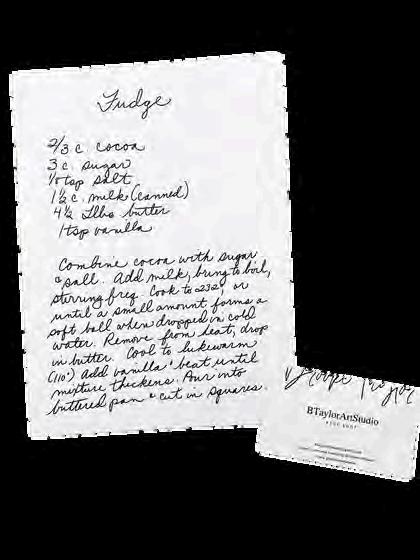 Fudge
2/3 c. cocoa
3 c. sugar
1/8 tsp salt
1 1/2 c. milk (canned)
4 1/2 Tlbs butter
1 tsp vanilla
Combine cocoa with sugar
& salt. Add milk, bring to boil,
stirring freq. Cook to 232°, or
until a small amount forms a
soft ball when dropped in cold
water. Remove from heat, drop
in butter. Cool to lukewarm
(110°) Add vanilla & beat until
mixture thickens. Pour into
buttered pan & cut in squares.
Taylor
BTaylorArtStudio